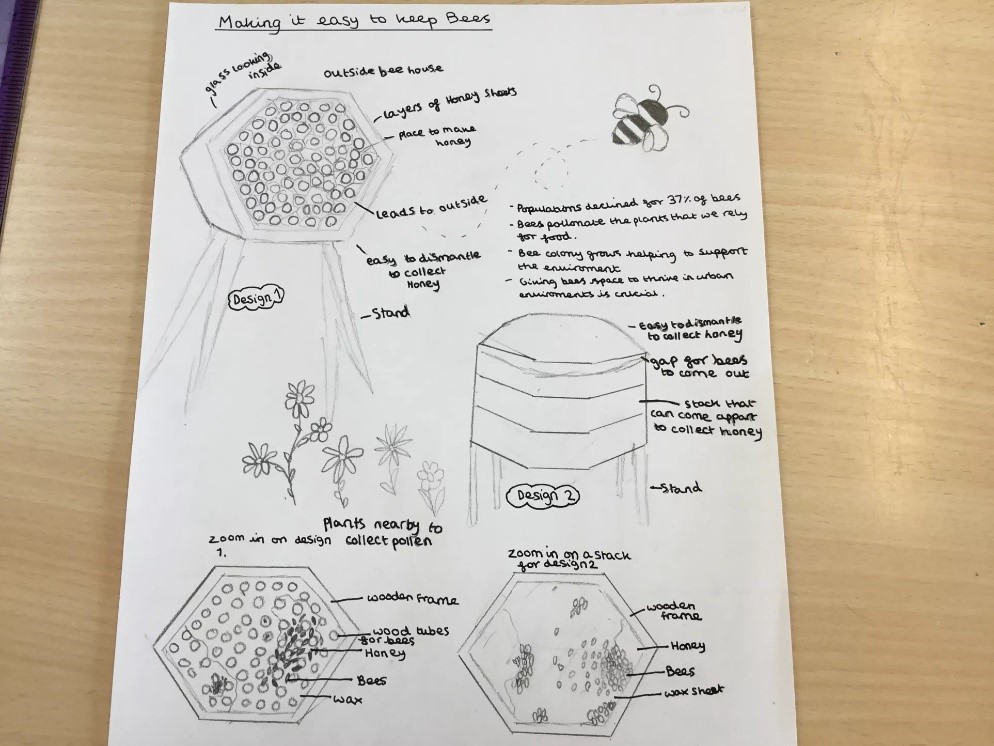 Making it easy to keep Bees
glass looking
inside
outside bee house
layers of Honey sheets
place to make
honey
leads to outside
easy to dismantle
to collect
Honey
Design 1
Stand
- Populations declined for 37% of bees
- Bees pollonate the plants that we rely
for food.
- Bee colony grows helping to support
the enviroment
- Giving bees space to thrive in urban
enviroments is crucial.
Easy to dismantle
to collect honey
gap for bees
to come out
stack that
can come appart
to collect honey
Stand
Design 2
Plants nearby to
collect pollen
zoom in on design
1.
wooden frame
wood tubes
for bees
Honey
Bees
wax
zoom in on a stack
for design 2
wooden
frame
Honey
Bees
wax sheet